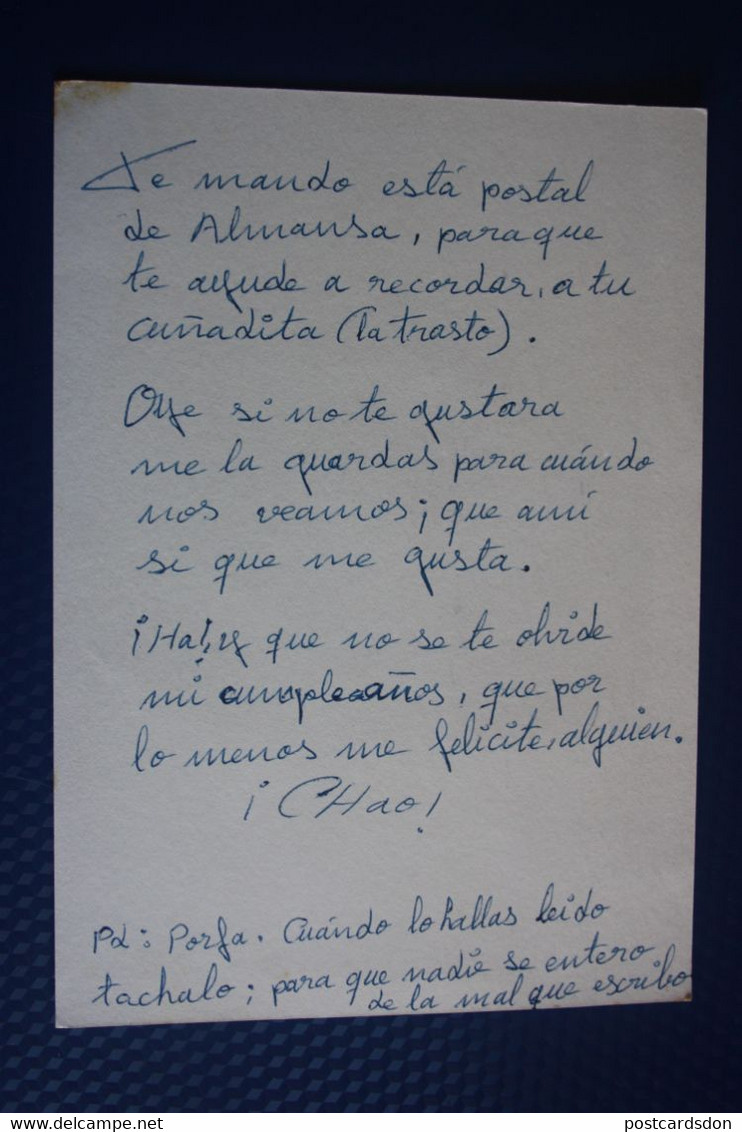 Te mando está postal
de Almansa, para que
te ayude a recordar, a tu
cuñadita (la trasto).
Oye si no te gustara
me la guardas para cuándo
nos veamos; que amí
si que me gusta.
¡Ha!, y que no se te olvide
mi cumpleaños, que por
lo menos me felicite, alguien.
¡CHao!
Pd: Porfa. Cuándo lo hallas leido
tachalo; para que nadie se entero
de la mal que escribo
delcampe.net
postcardsdon